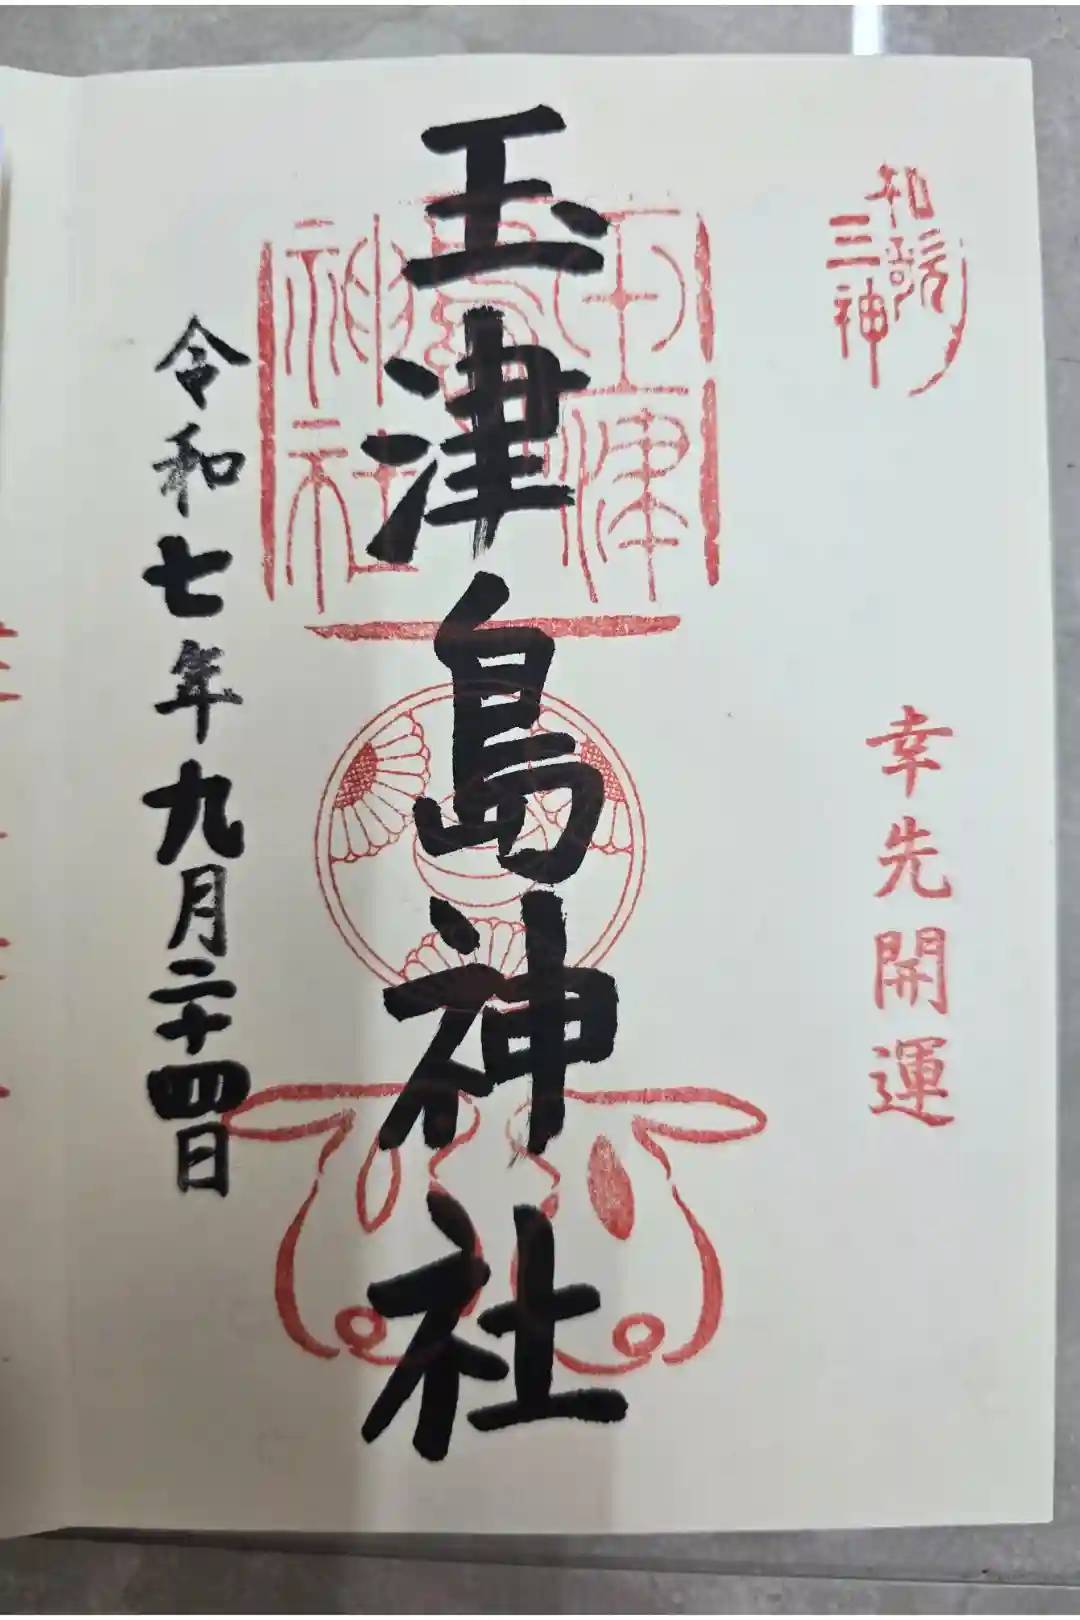 和歌
三神
幸先開運
玉津島神社
玉津島
神社
令和七年九月二十四日